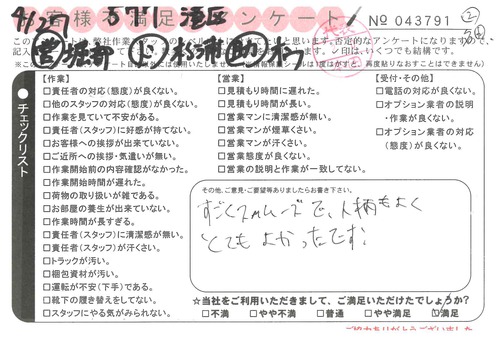 お客様不満足アンケート
No 043791 ②
港区
松浦
チェックリスト
【作業】
□責任者の対応(態度)が良くない。
□他のスタッフの対応(態度)が良くない。
□作業を見ていて不安がある。
□責任者(スタッフ)に好感が持てない。
□お客様への挨拶が出来ていない。
□ご近所への挨拶・気遣いが無い。
□作業開始前の内容確認がなかった。
□作業開始時間が遅れた。
□荷物の取り扱いが雑である。
□お部屋の養生が出来ていない。
□作業時間が長すぎる。
□責任者(スタッフ)に清潔感が無い。
□責任者(スタッフ)が汗くさい。
□トラックが汚い。
□梱包資材が汚い。
□運転が安(下手)である。
□靴下の履き替えをしてない。
□スタッフにやる気がみられない。
【営業】
□見積もり時間に遅れた。
□見積もり時間が長い。
□営業マンに清潔感が無い。
□営業マンが煙草くさい。
□営業マンが汗くさい。
□営業態度が良くない。
□営業の説明と作業が一致してない。
【受付・その他】
□電話の対応が良くない。
□オプション業者の説明・作業が良くない。
□オプション業者の対応(態度)が良くない。
その他、ご意見・ご要望等ありましたらお書き下さい。
すごくスムーズで、人柄もよく
とてもよかったです。
☆当社をご利用いただきまして、ご満足いただけたでしょうか?
□不満 □やや不満 □普通 □やや満足 ☑満足
ご協力ありがとうございました